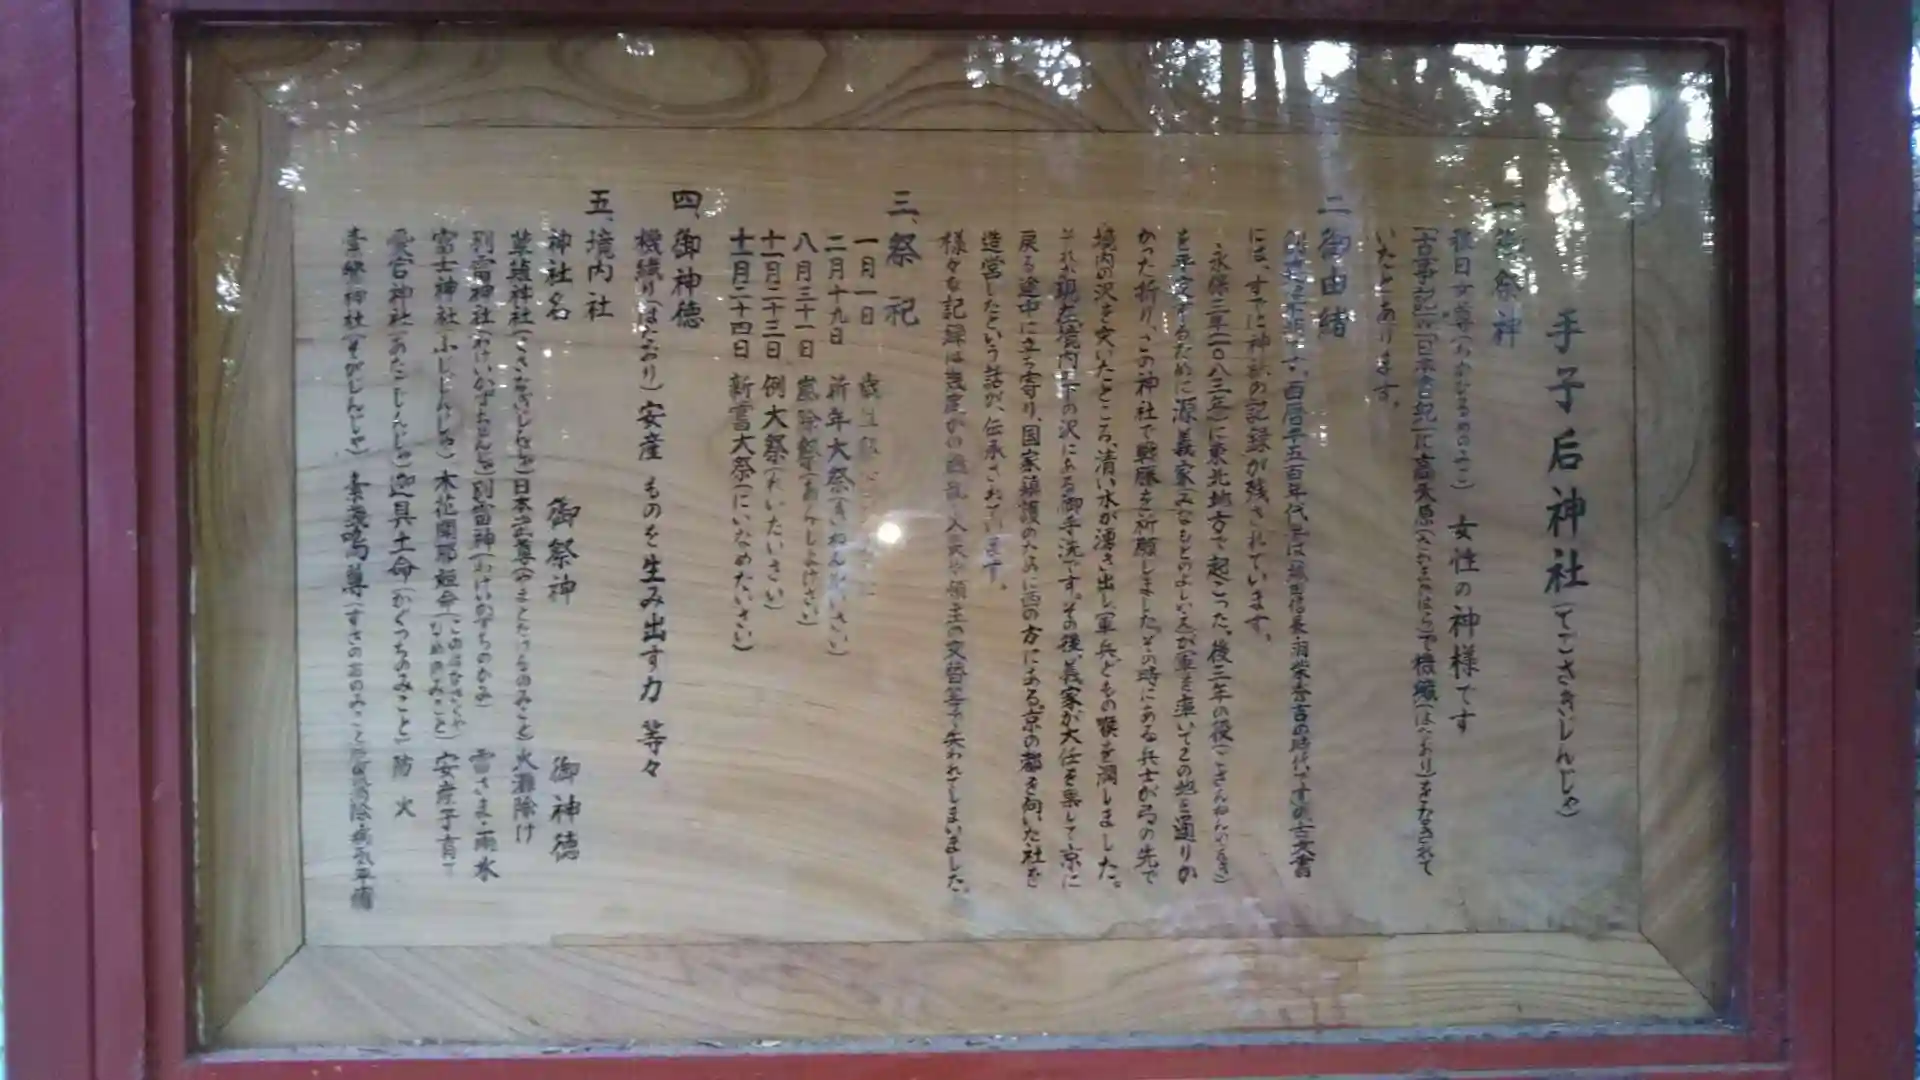 手子后神社(てごさきじんじゃ)
一、御祭神
稚日女尊(わかひるめのみこ) 女性の神様です
「古事記」「日本書紀」に高天原(たかまがはら)で機織(はたおり)をなされて
いたとあります。
二、御由緒
西暦千五百年代
には、すでに神社の記録が残されています。
永保三年(一〇八三年)に東北地方で起こった、後三年の役(ごさんねんのえき)
を平定するために源義家(みなもとのよしいえ)が軍を率いてこの地を通りか
かった折り、この神社で戦勝を祈願しました。その時にある兵士が弓の先で
境内の沢を突いたところ、清い水が湧き出し軍兵どもの喉を潤しました。
それが現在境内下の沢にある御手洗です。その後、義家が大任を果して京に
戻る途中に立ち寄り、国家鎮護のために西の方にある京の都を向いた社を
造営したという話が、伝承されています。
様々な記録は幾度かの戦乱、人災や領主の交替等で失われてしまいました。
三、祭祀
一月一日 歳旦祭
二月十九日 祈年大祭(きねんたいさい)
八月三十一日 嵐除祭(あらしよけさい)
十一月二十三日 例大祭(れいたいさい)
十二月二十四日 新嘗大祭(にいなめたいさい)
四、御神徳
機織り(はたおり) 安産 ものを生み出す力 等々
五、境内社
神社名 御祭神 御神徳
草薙神社(くさなぎじんじゃ) 日本武尊(やまとたけるのみこと) 火難除け
別雷神社(わけいかずちじんじゃ) 別雷神(わけいかずちのかみ) 雷さま・雨水
富士神社(ふじじんじゃ) 木花開耶姫命(このはなさくやひめのみこと) 安産子育て
愛宕神社(あたごじんじゃ) 迦具土命(かぐつちのみこと) 防火
素鵞神社(そがじんじゃ) 素戔嗚尊(すさのおのみこと) 病気平癒